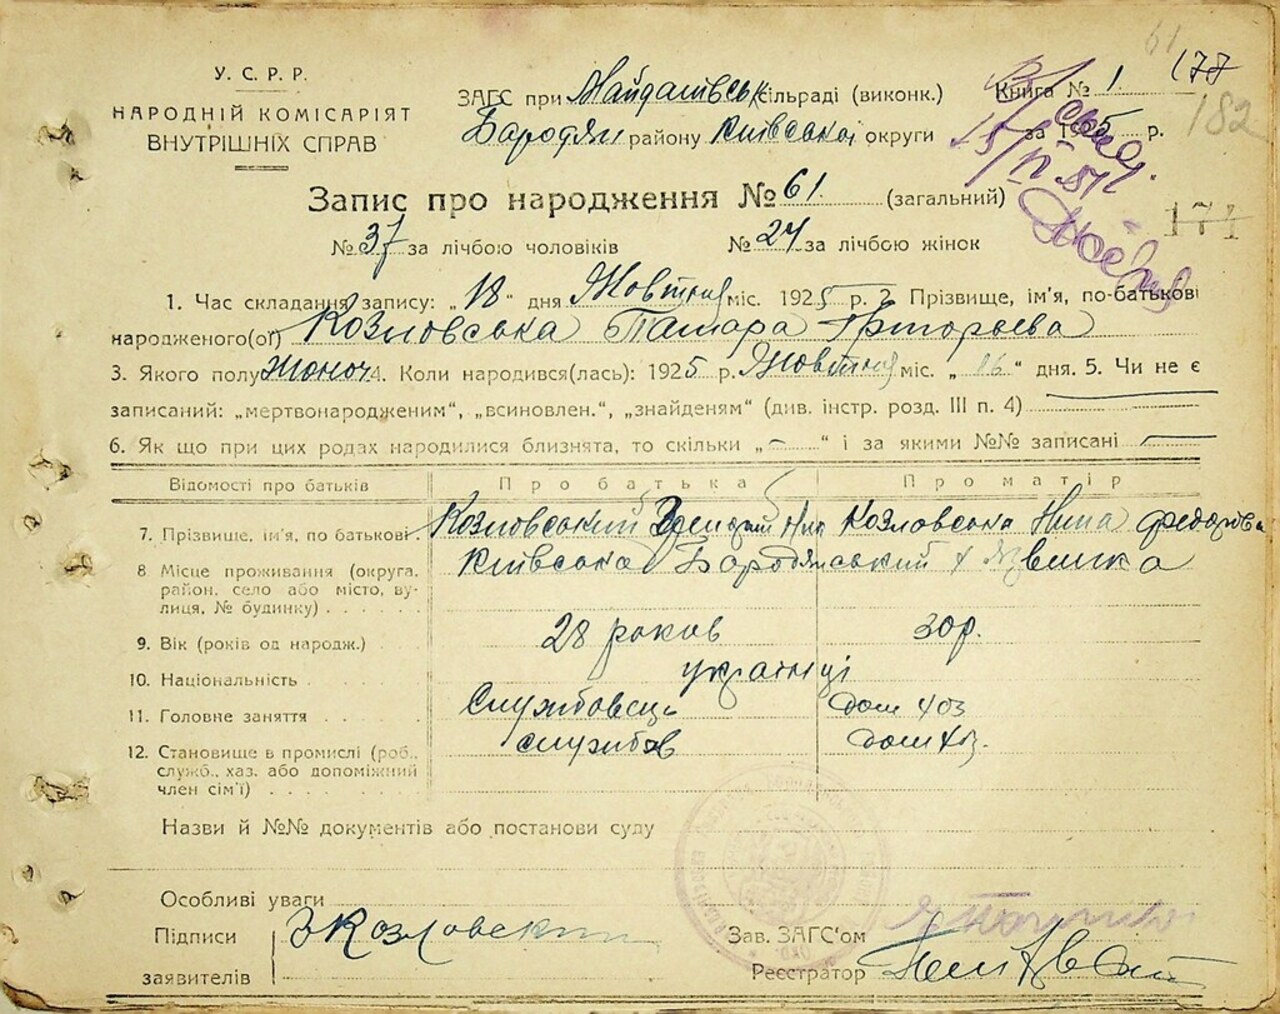 61 178
У. С. Р. Р.
НАРОДНІЙ КОМІСАРІЯТ
ВНУТРІШНІХ СПРАВ
ЗАГС при Майданівськ сільраді (виконк.)
Бородян району Київської округи
Книга № 1.
за 1925 р.
182
15/VI 51
Запис про народження № 61. (загальний)
171
№ 37 за лічбою чоловіків № 24 за лічбою жінок
1. Час складання запису: „18“ дня Жовтня міс. 1925 р. 2. Прізвище, ім'я, по-батькові
народженого(ої) Козловська Тамара
3. Якого полу Жіноч 4. Коли народився(лась): 1925 р. Жовтня міс. „16“ дня. 5. Чи не є
записаний: „мертвонародженим“, „всиновлен.“, „знайденям“ (див. інстр. розд. III п. 4)
6. Як що при цих родах народилися близнята, то скільки „-“ і за якими №№ записані —
Відомості про батьків Про батька Про матір
7. Прізвище, ім'я, по батькові. Козловський Козловська Нина Федорівна
8 Місце проживання (округа, район, село або місто, вулиця, № будинку) Київська Бородянський
9. Вік (років од народж.) 28 роков 30 р.
10. Національність українці
11. Головне заняття Службовець дом хоз
12. Становище в промислі (роб., служб., хаз. або допоміжний член сім'ї) службов дом хоз.
Назви й №№ документів або постанови суду
Особливі уваги
Підписи
заявителів
З Козловский
Зав. ЗАГС'ом
Реєстратор